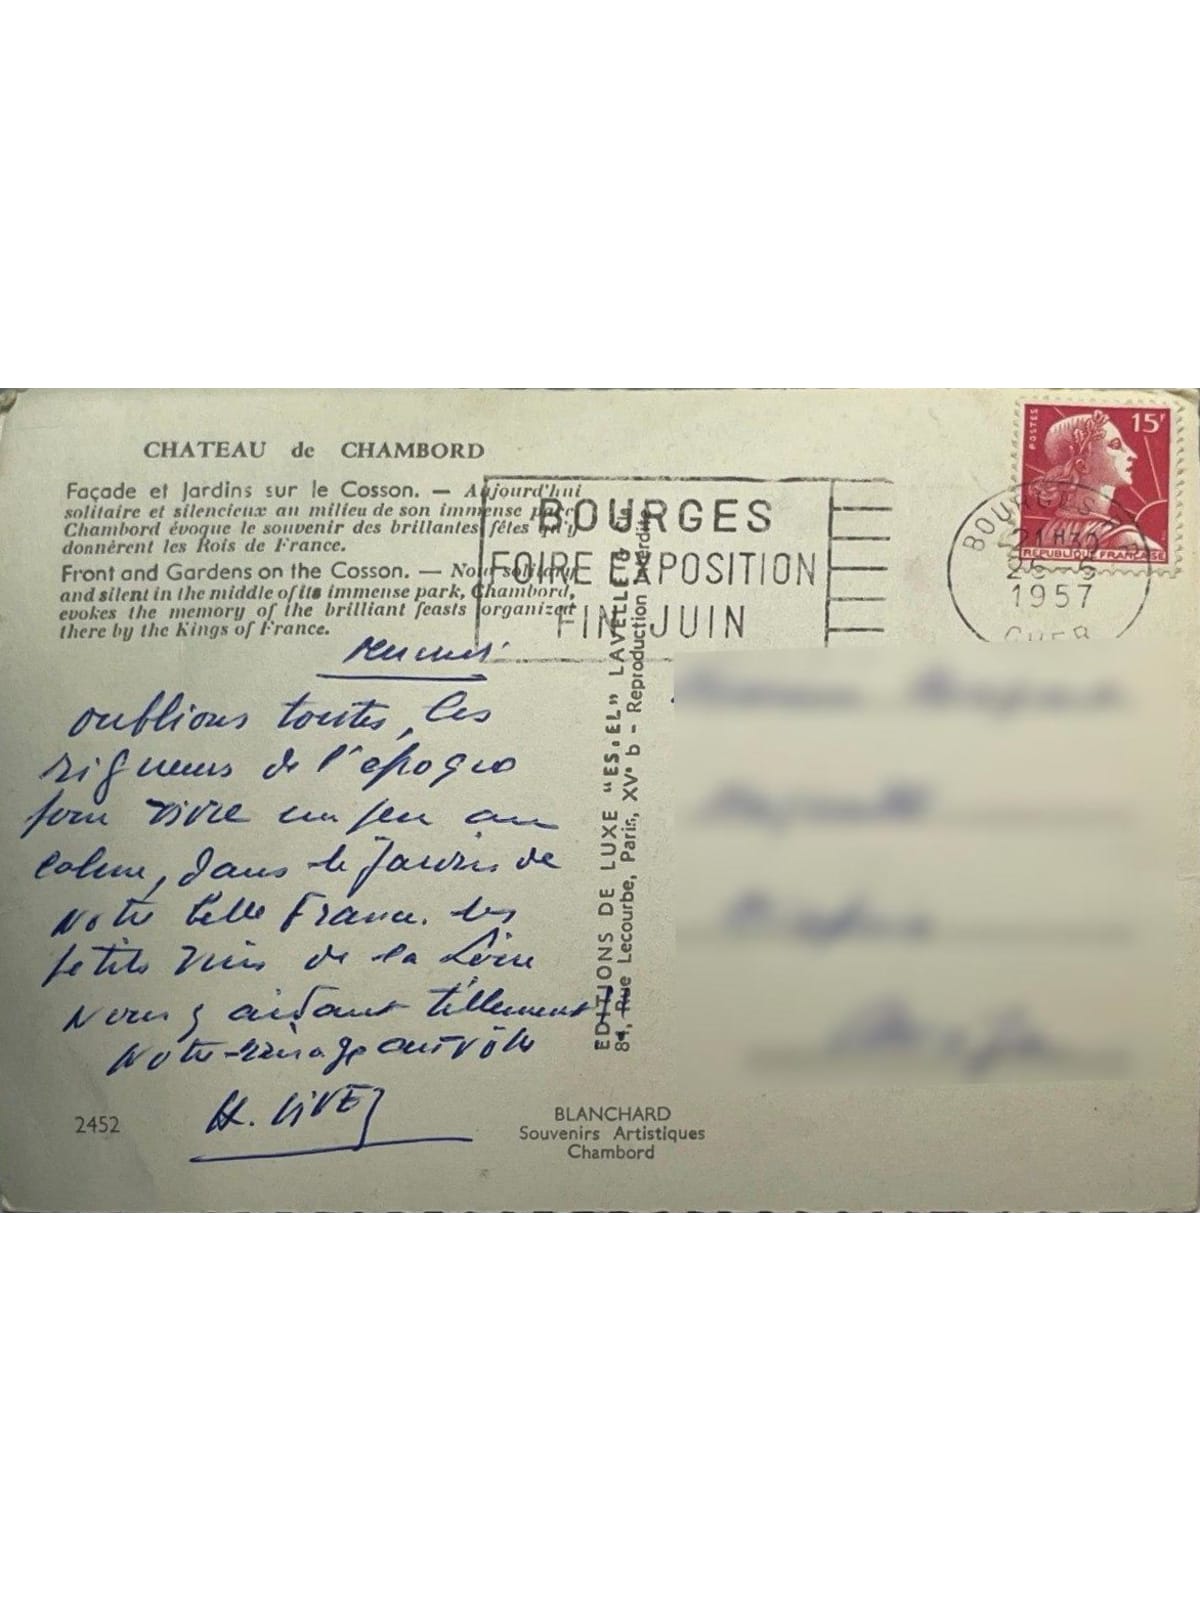 CHATEAU de CHAMBORD
Façade et Jardins sur le Cosson. — Aujourd'hui
solitaire et silencieux au milieu de son immense parc
Chambord évoque le souvenir des brillantes fêtes qu'y
donnèrent les Rois de France.
Front and Gardens on the Cosson. — Now solitary
and silent in the middle of its immense park, Chambord,
evokes the memory of the brilliant feasts organized
there by the Kings of France.
oublions toutes, les
rigueurs de l'époque
pour vivre un peu au
calme, dans le Jardin de
Notre belle France. les
petits vins de la Loire
Nous y aidant tellement
Notre
H. VIVEZ
2452
BLANCHARD
Souvenirs Artistiques
Chambord
EDITIONS DE LUXE "ES.EL" LAVELLE & Cie
81, Rue Lecourbe, Paris, XVe b - Reproduction Interdite
BOURGES
FOIRE EXPOSITION
FIN JUIN
POSTES
15F
REPUBLIQUE FRANÇAISE
BOURGES
21 H30
1957
CHER